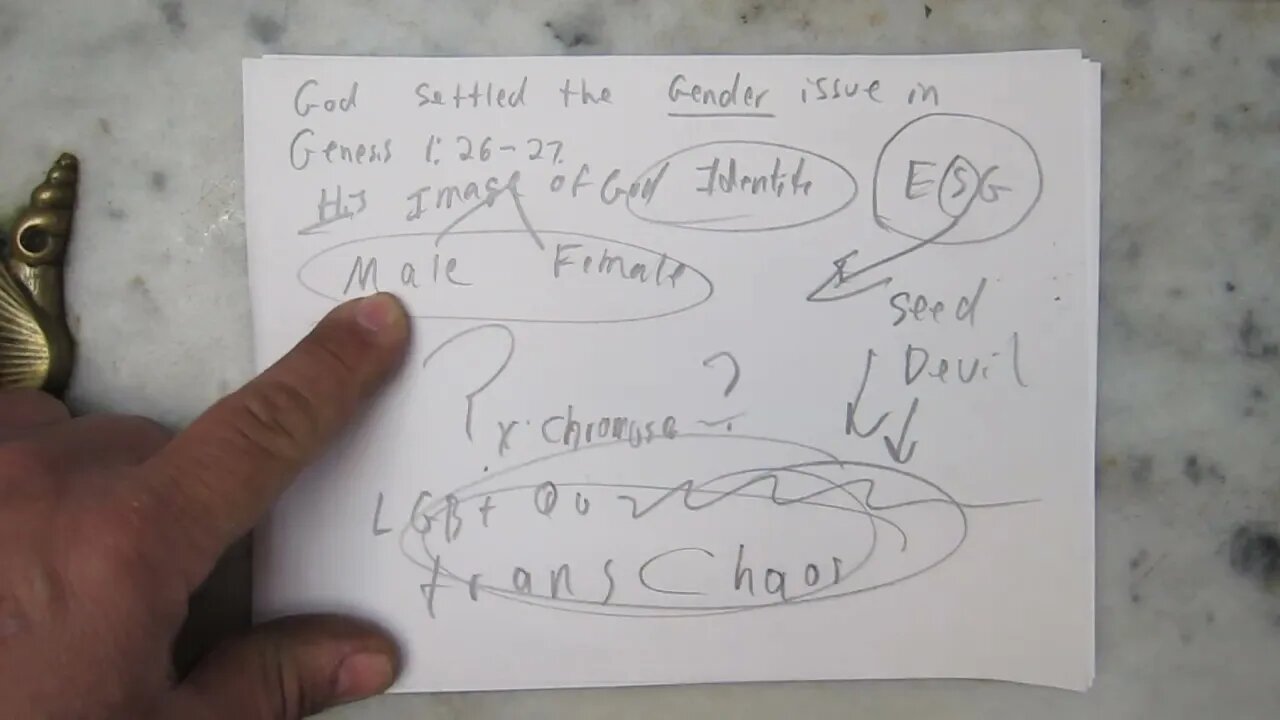 God settled the Gender issue in
Genesis 1:26-27.
His Image of God Identite
ESG
Male Female
seed
Devil
? ?
x. Chromoso
LGB+ QU
trans Chaos